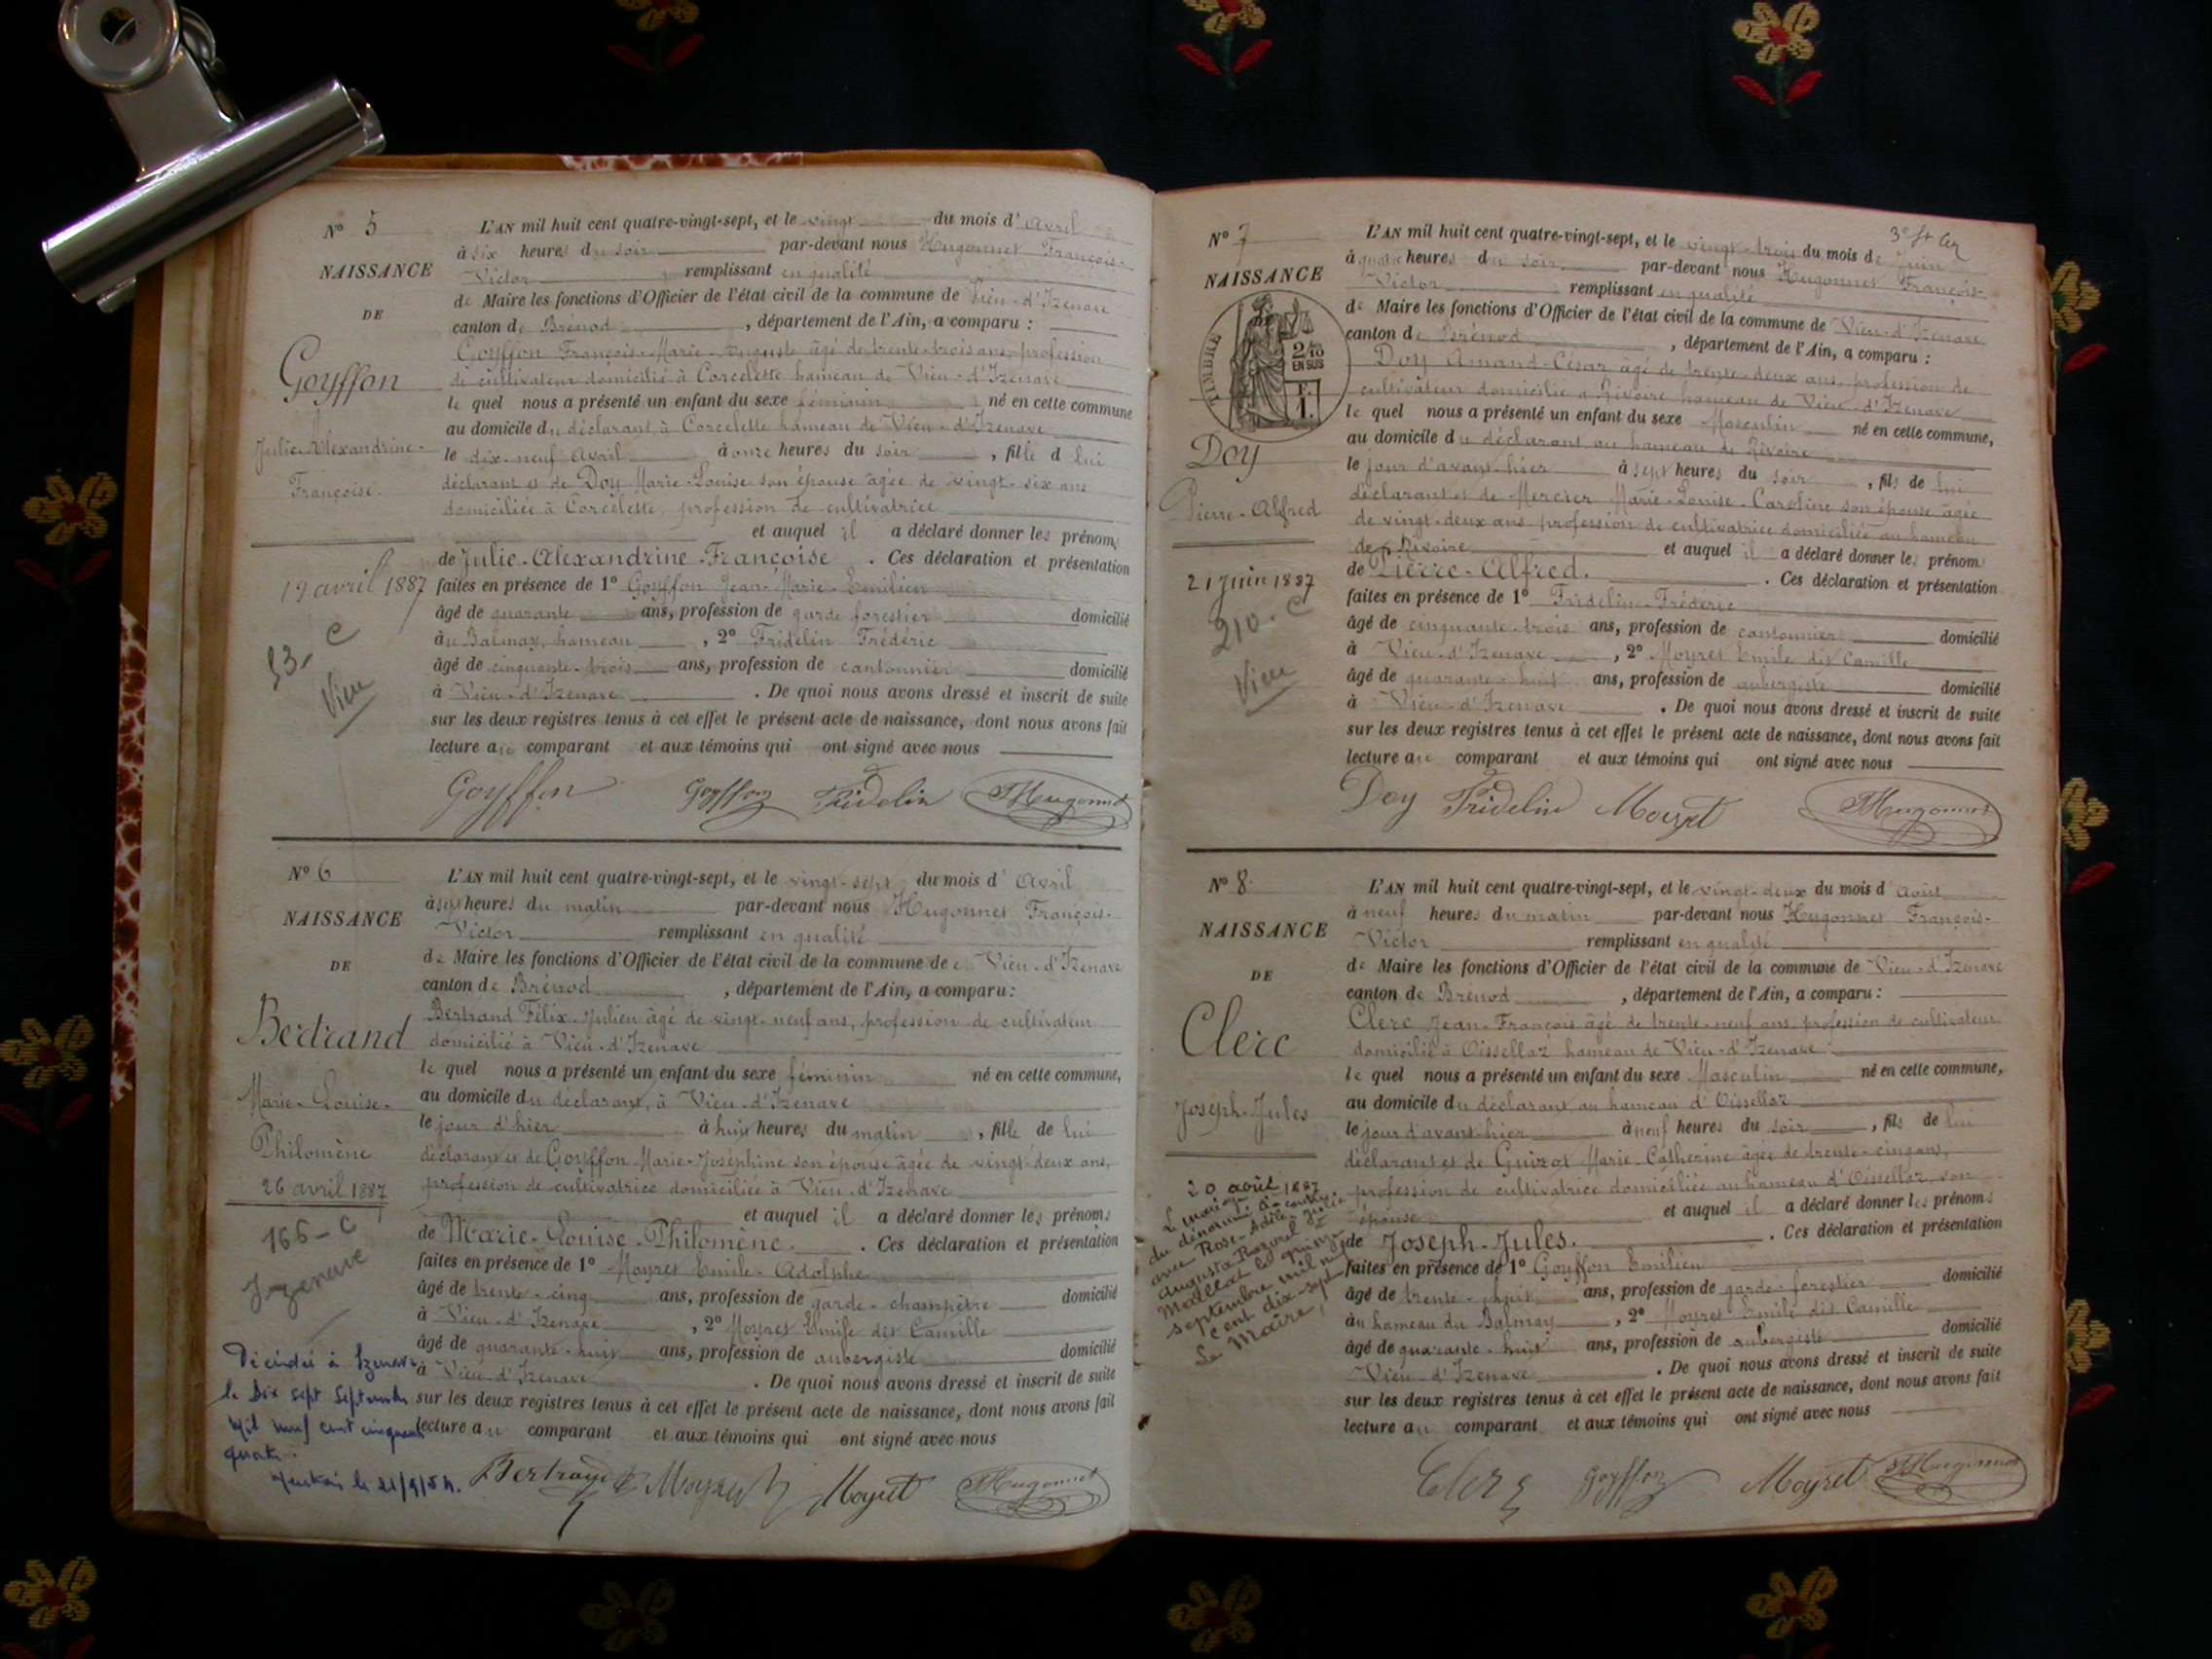 N° 5
NAISSANCE
DE
Goyffon
Julie-Alexandrine-
Françoise.
19 avril 1887
53- C
Vieu
L'AN mil huit cent quatre-vingt-sept, et le vingt du mois d'Avril
à six heures du soir par-devant nous Hugonnet François-
Victor remplissant en qualité
de Maire les fonctions d'Officier de l'état civil de la commune de Vieu-d'Izenave
canton de Brénod, département de l'Ain, a comparu :
Goyffon François-Marie-Auguste âgé de trente-trois ans, profession
de cultivateur domicilié à Corcelette hameau de Vieu-d'Izenave
le quel nous a présenté un enfant du sexe féminin né en cette commune
au domicile du déclarant, à Corcelette hameau de Vieu-d'Izenave
le dix-neuf Avril à onze heures du soir, fille d lui
déclarant et de Doy Marie-Louise son épouse âgée de vingt-six ans
domiciliée à Corcelette, profession de cultivatrice
et auquel il a déclaré donner les prénoms
de Julie-Alexandrine-Françoise. Ces déclaration et présentation
faites en présence de 1° Goyffon Jean-Marie-Emilien
âgé de quarante ans, profession de garde forestier domicilié
au Balmay, hameau, 2° Fridelin Frédéric
âgé de cinquante-trois ans, profession de cantonnier domicilié
à Vieu-d'Izenave. De quoi nous avons dressé et inscrit de suite
sur les deux registres tenus à cet effet le présent acte de naissance, dont nous avons fait
lecture au comparant et aux témoins qui ont signé avec nous
Goyffon Goyffon Fridelin Hugonnet
N° 6
NAISSANCE
DE
Bertrand
Marie-Louise-
Philomène
26 avril 1887
166-C
Izenave
Décédée à Izenave
le Dix sept Septembre
mil neuf cent cinquante
quatre.
le 21/9/54.
L'AN mil huit cent quatre-vingt-sept, et le vingt-sept du mois d'Avril
à sept heures du matin par-devant nous Hugonnet François-
Victor remplissant en qualité
de Maire les fonctions d'Officier de l'état civil de la commune de Vieu-d'Izenave
canton de Brénod, département de l'Ain, a comparu :
Bertrand Félix-Julien âgé de vingt-neuf ans, profession de cultivateur
domicilié à Vieu-d'Izenave
le quel nous a présenté un enfant du sexe féminin né en cette commune,
au domicile du déclarant, à Vieu-d'Izenave
le jour d'hier à huit heures du matin, fille de lui
déclarant et de Goyffon Marie-Joséphine son épouse âgée de vingt-deux ans,
profession de cultivatrice domiciliée à Vieu-d'Izenave
et auquel il a déclaré donner les prénoms
de Marie-Louise-Philomène. Ces déclaration et présentation
faites en présence de 1° Moyret Emile-Adolphe
âgé de trente-cinq ans, profession de garde-champêtre domicilié
à Vieu-d'Izenave, 2° Moyret Emile dit Camille
âgé de quarante-huit ans, profession de aubergiste domicilié
à Vieu-d'Izenave. De quoi nous avons dressé et inscrit de suite
sur les deux registres tenus à cet effet le présent acte de naissance, dont nous avons fait
lecture au comparant et aux témoins qui ont signé avec nous
Bertrand Moyret Moyret Hugonnet
N° 7
NAISSANCE
TIMBRE
2/10
EN SUS
F.
1.
Doy
Pierre-Alfred
21 juin 1887
210-C
Vieu
L'AN mil huit cent quatre-vingt-sept, et le vingt-trois du mois de Juin
à quatre heures du soir par-devant nous Hugonnet François-
Victor remplissant en qualité
de Maire les fonctions d'Officier de l'état civil de la commune de Vieu-d'Izenave
canton de Brénod, département de l'Ain, a comparu :
Doy Amand-César âgé de trente-deux ans, profession de
cultivateur domicilié à Rivoire hameau de Vieu-d'Izenave
le quel nous a présenté un enfant du sexe Masculin né en cette commune,
au domicile du déclarant, au hameau de Rivoire
le jour d'avant-hier à sept heures du soir, fils de lui
déclarant et de Mercier Marie-Louise-Caroline son épouse âgée
de vingt-deux ans profession de cultivatrice domiciliée au hameau
de Rivoire et auquel il a déclaré donner les prénom
de Pierre-Alfred. Ces déclaration et présentation
faites en présence de 1° Fridelin-Fréderic
âgé de cinquante-trois ans, profession de cantonnier domicilié
à Vieu-d'Izenave, 2° Moyret Emile dit Camille
âgé de quarante-huit ans, profession de aubergiste domicilié
à Vieu-d'Izenave. De quoi nous avons dressé et inscrit de suite
sur les deux registres tenus à cet effet le présent acte de naissance, dont nous avons fait
lecture au comparant et aux témoins qui ont signé avec nous
Doy Fridelin Moyret Hugonnet
N° 8
NAISSANCE
DE
Clerc
Joseph-Jules
20 août 1887
Le mariage
du dénommé ci-contre
avec Rose-Adèle-Julie
Augusta
Maillat le quinze
septembre mil neuf
cent dix-sept
Le Maire,
L'AN mil huit cent quatre-vingt-sept, et le vingt-deux du mois d'Août
à neuf heures du matin par-devant nous Hugonnet François-
Victor remplissant en qualité
de Maire les fonctions d'Officier de l'état civil de la commune de Vieu-d'Izenave
canton de Brénod, département de l'Ain, a comparu :
Clerc Jean-François âgé de trente-neuf ans, profession de cultivateur
domicilié à Oissellaz hameau de Vieu-d'Izenave
le quel nous a présenté un enfant du sexe Masculin né en cette commune,
au domicile du déclarant au hameau d'Oissellaz
le jour d'avant-hier à neuf heures du soir, fils de lui
déclarant et de Guizot Marie-Catherine âgée de trente-cinq ans,
profession de cultivatrice domiciliée au hameau d'Oissellaz, son
épouse et auquel il a déclaré donner les prénoms
de Joseph-Jules. Ces déclaration et présentation
faites en présence de 1° Goyffon Emilien
âgé de trente-huit ans, profession de garde-forestier domicilié
au hameau du Balmay, 2° Moyret Emile dit Camille
âgé de quarante-huit ans, profession de aubergiste domicilié
Vieu-d'Izenave. De quoi nous avons dressé et inscrit de suite
sur les deux registres tenus à cet effet le présent acte de naissance, dont nous avons fait
lecture au comparant et aux témoins qui ont signé avec nous
Clerc Goyffon Moyret Hugonnet